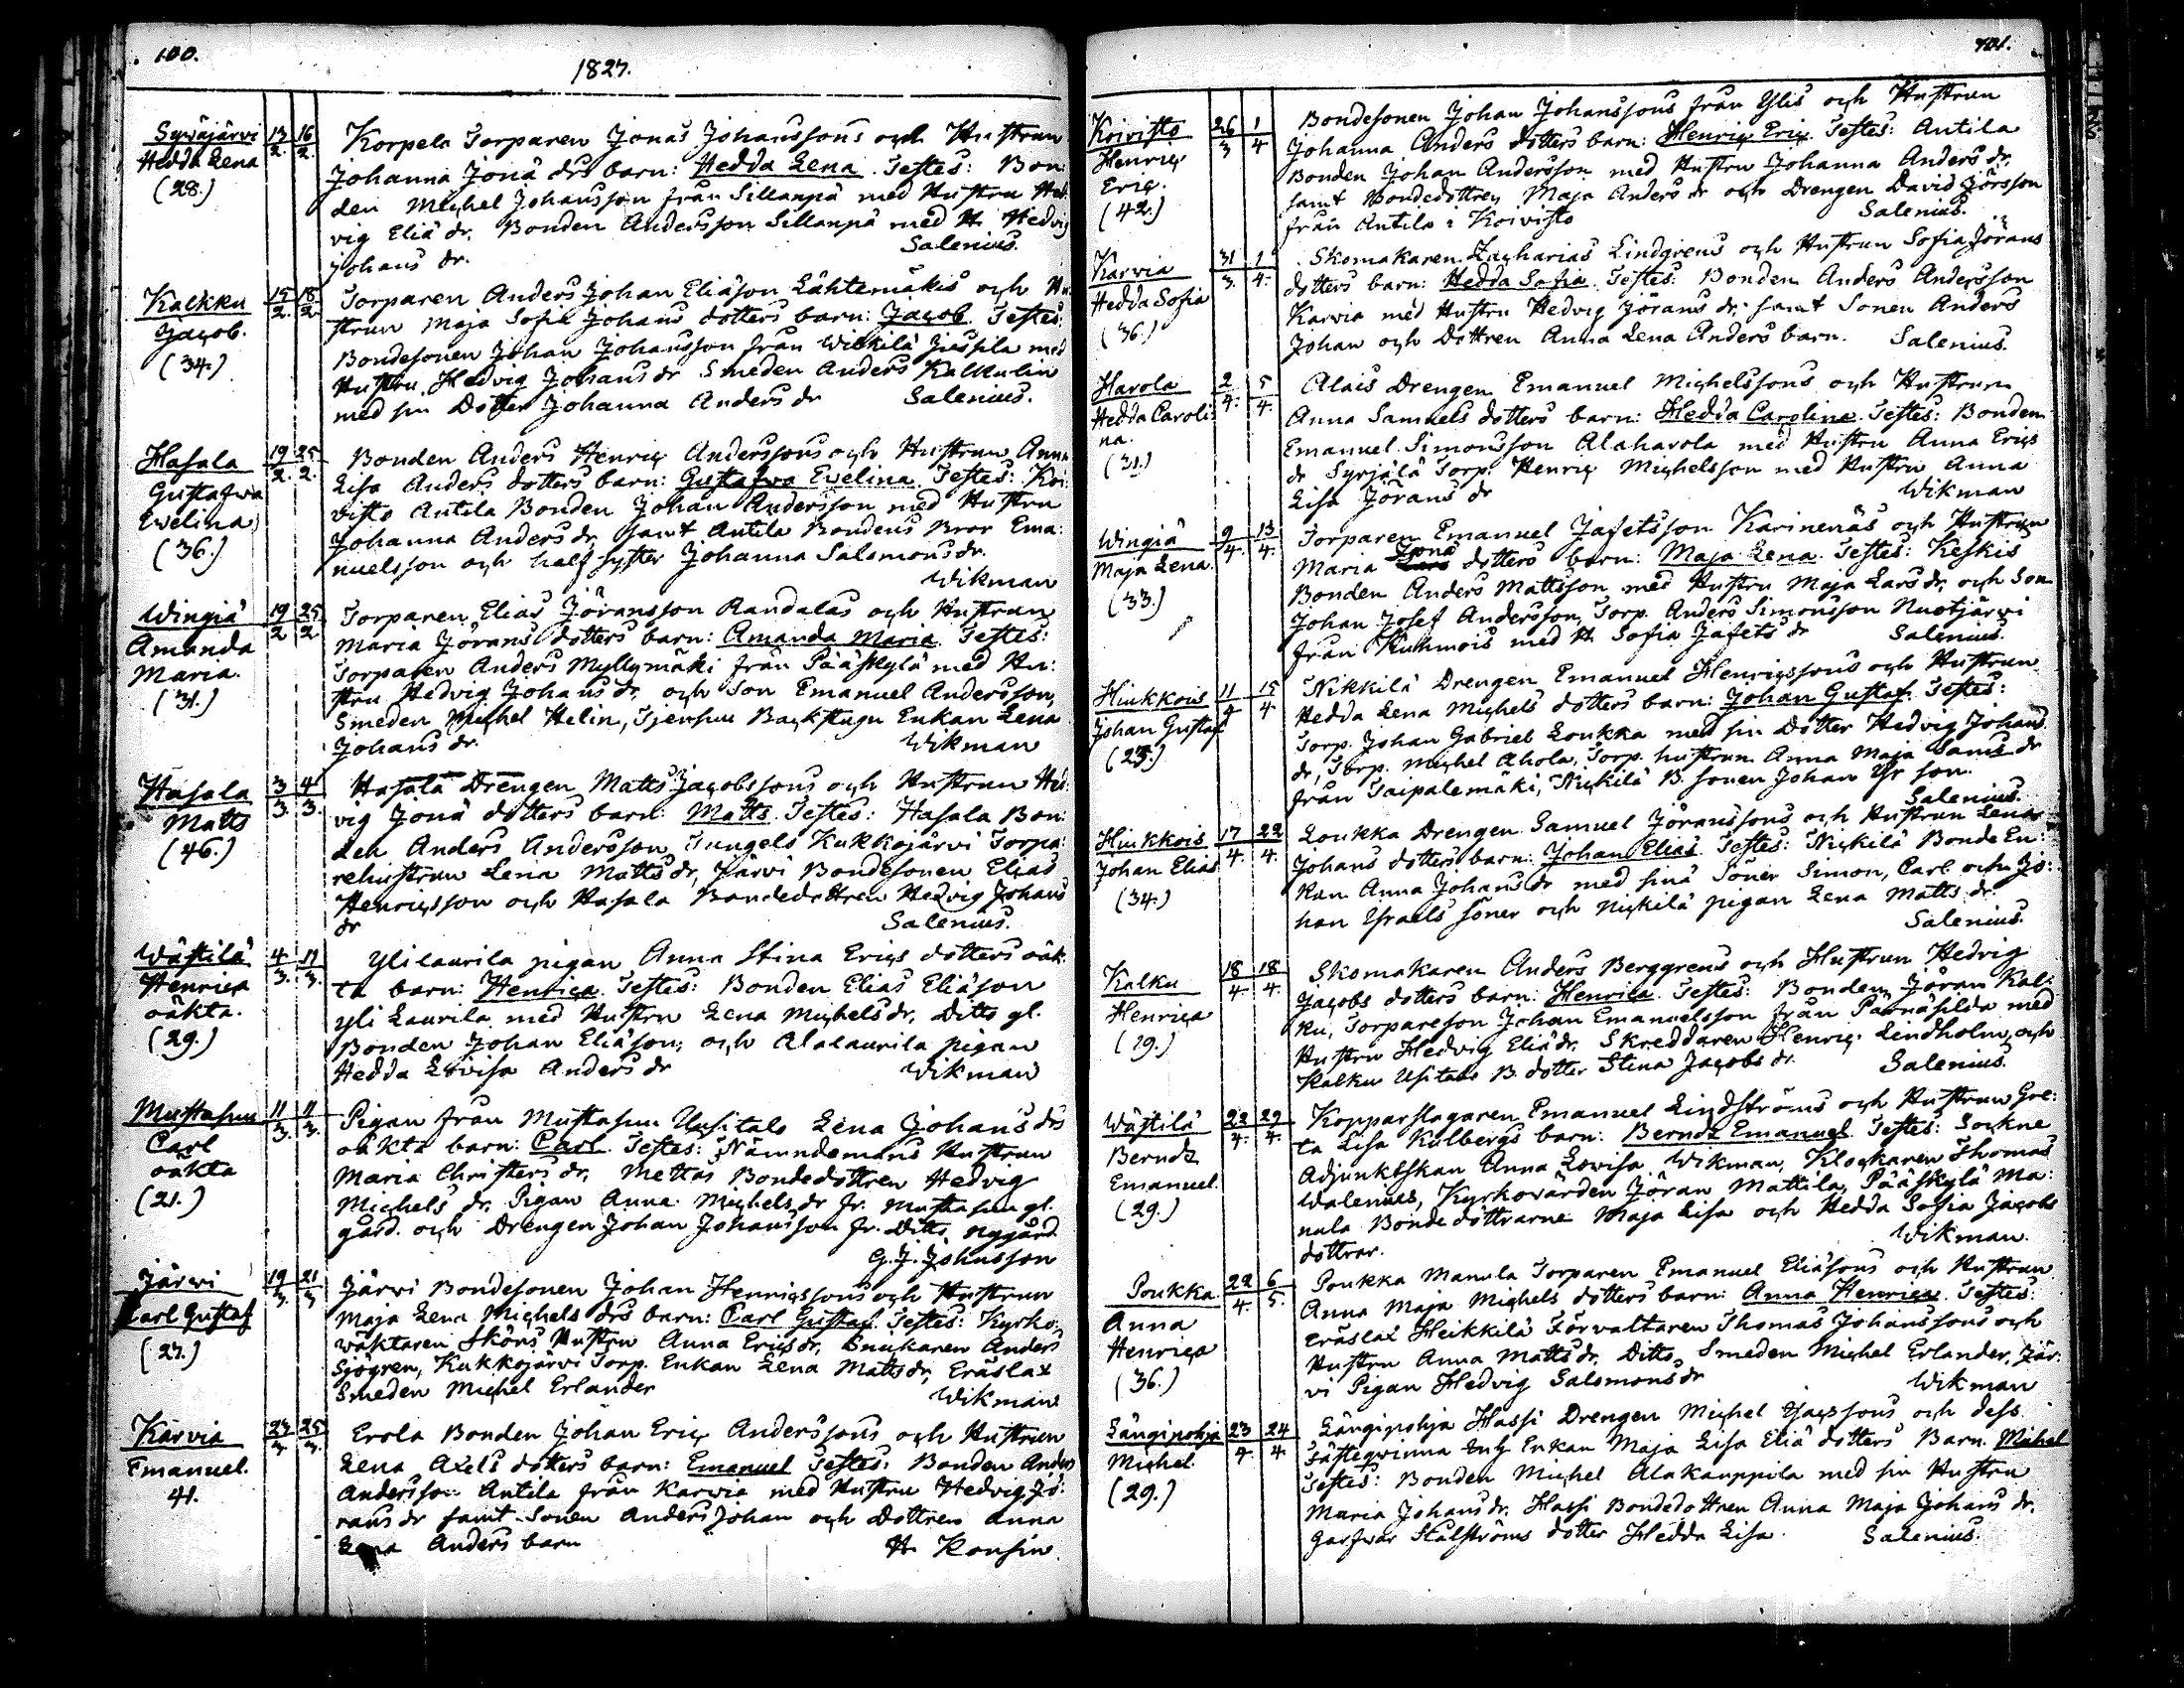 100.
1827.
Sywäjärvi 13/2. 16/2.
Hedda Lena
(28.)
Korpela Torparen Jonas Johanssons och Hustrun
Johanna Jonä drs barn: Hedda Lena. Testes: Bon
den Michel Johansson från Sillanpä med Hustru Hed
vig Eliä dr. Bonden Andersson Sillanpä med H. Hedvig
Johans dr. Salenius.
Kalkku 15/2. 18/2
Jacob.
(34.)
Torparen Anders Johan Eliäson Lähtemäkis och Hu
strun Maja Sofia Johans dotters barn: Jacob. Testes:
Bondesonen Johan Johansson från Wilkilä med
Hustru Hedvig Johans dr Smeden Anders Kalkulin
med sin Dotter Johanna Anders dr Salenius.
Hasala 19/2. 25/2.
Gustafwa
Ewelina
(36.)
Bonden Anders Henric Anderssons och Hustrun Anna
Lisa Anders dotters barn: Gustafwa Ewelina. Testes: Koi
visto Antila Bonden Johan Andersson med Hustru
Johanna Anders dr, samt Antila Bondens Bror Ema:
nuelsson och half syster Johanna Salomons dr.
Wikman
Wingiä 19/2 25/2
Amanda
Maria.
(31.)
Torparen Elias Jöransson Randalas och Hustrun
Maria Jörans dotters barn: Amanda Maria. Testes:
Torparen Anders Myllymäki från Pääskylä med Hu:
stru Hedvig Johans dr, och Son Emanuel Andersson,
Smeden Michel Helin, Backstugu Enkan Lena
Johans dr. Wikman
Hasala 3/3. 4/3.
Matts
(46.)
Hasala Drengen Matts Jacobssons och Hustrun Hed:
vig Jonä dotters barn: Matts. Testes: Hasala Bon:
den Anders Andersson, Tungels Kukkojärvi Torpa:
rehustrun Lena Matts dr, Järvi Bondesonen Elias
Henricsson och Hasala Bondedottren Hedvig Johans
dr Salenius.
Wästilä 4/3. 11/3.
Henrica
oäkta.
(29.)
Ylilaurila pigan Anna Stina Erics dotters oäk
ta barn: Henrica. Testes: Bonden Elias Eliäson
Yli Laurila med Hustru Lena Michels dr, Ditto gl.
Bonden Johan Eliäson, och Alalaurila pigan
Hedda Lovisa Anders dr Wikman
Mustasuu 11/3. 11/3.
Carl
oäkta
(21.)
Pigan från Mustasuu Usitalo Lena Johans drs
oäkta barn: Carl. Testes: Nämndemans Hustrun
Maria Christers dr, Mettäs Bondedottren Hedvig
Michels dr, Pigan Anna Michels dr fr. Mustasuu gl.
gård. och Drengen Johan Johansson fr. Ditto nygård.
G. J. Johnsson
Järvi 19/3. 21/3
Carl Gustaf
(27.)
Järvi Bondesonen Johan Henricssons och Hustrun
Maja Lena Michels drs barn: Carl Gustaf. Testes: Kyrko:
wäktaren Sköns Hustru Anna Erics dr, Snickaren Anders
Sjögren, Kukkojärvi Torp. Enkan Lena Matts dr, Eräslax
Smeden Michel Erlander Wikman
Karvia 23/3. 25/3.
Emanuel.
41.
Erola Bonden Johan Eric Anderssons och Hustrun
Lena Axels dotters barn: Emanuel Testes: Bonden Anders
Andersson Antila från Karvia med Hustru Hedvig Jö:
rans dr samt Sonen Anders Johan och Dottren Anna
Lena Anders barn H. Konsin
101.
Koivisto 26/3 1/4
Henric
Eric.
(42.)
Bondesonen Johan Johanssons från Ylis och Hustrun
Johanna Anders dotters barn: Henric Eric. Testes: Antila
Bonden Johan Andersson med Hustru Johanna Anders dr.
samt Bondedottren Maja Anders dr och Drengen David Jörsson
från Antila i Koivisto Salenius.
Karvia 31/3. 1/4.
Hedda Sofia
(36.)
Skomakaren Zacharias Lindgrens och Hustrun Sofia Jörans
dotters barn: Hedda Sofia. Testes: Bonden Anders Andersson
Karvia med Hustru Hedvig Jörans dr, samt Sonen Anders
Johan och Dottren Anna Lena Anders barn. Salenius.
Harola 2/4. 5/4.
Hedda Caroli
na.
(31.)
Alais Drengen Emanuel Michelssons och Hustrun
Anna Samuels dotters barn: Hedda Carolina. Testes: Bonden
Emanuel Simonsson Alaharola med Hustru Anna Erics
dr Syrjälä Torp. Henric Michelsson med Hustru Anna
Lisa Jörans dr Wikman
Wingiä 9/4. 13/4.
Maja Lena.
(33.)
Torparen Emanuel Jafetsson Karinenäs och Hustrun
Maria Jonä dotters barn: Maja Lena. Testes: Keskis
Bonden Anders Mattsson med Hustru Maja Lars dr, och Son
Johan Josef Andersson, Torp. Anders Simonsson Nuotjärvi
från Kuhmois med H. Sofia Jafets dr Salenius.
Hiukkois 11/4 15/4
Johan Gustaf
(23.)
Nikkilä Drengen Emanuel Henricssons och Hustrun
Hedda Lena Michels dotters barn: Johan Gustaf. Testes:
Torp. Johan Gabriel Loukka med sin Dotter Hedvig Johans
dr, Torp. Michel Ahola, Torp. hustrun Anna Maja dr
från Taipalemäki, Nickilä B. sonen Johan Yr son.
Salenius.
Hiukkois 17/4. 22/4.
Johan Elias
(34.)
Loukka Drengen Samuel Jöranssons och Hustrun Lena
Johans dotters barn: Johan Elias. Testes: Nickilä Bonde En:
kan Anna Johans dr med sina Söner Simon, Carl och Jo:
han Yraels söner och Nickilä pigan Lena Matts dr.
Salenius.
Kalku 18/4. 18/4.
Henrica
(19.)
Skomakaren Anders Berggrens och Hustrun Hedvig
Jacobs dotters barn: Henrica. Testes: Bonden Jöran Kal:
ku, Torpareson Johan Emanuelsson från med
Hustru Hedvig Eliä dr. Skreddaren Henric Lindholm, och
Kalku Usitalo B. dotter Stina Jacobs dr. Salenius.
Wästilä 22/4. 29/4.
Berndt
Emanuel.
(29.)
Kopparslagaren Emanuel Lindströms och Hustrun Gre:
ta Lisa Kulbergs barn: Berndt Emanuel. Testes: Sockne
Adjunktskan Anna Lovisa Wikman, Klockaren Thomas
Walenius, Kyrkovärden Jöran Mattila, Pääskylä Ma:
nula Bonde döttrarne Maja Lisa och Hedda Sofia Jacobs
dottrar. Wikman.
Poukka 22/4. 6/5.
Anna
Henrica
(36.)
Poukka Manula Torparen Emanuel Eliäsons och Hustrun
Anna Maja Michels dotters barn: Anna Henrica. Testes:
Eräslax Heikkilä Förvaltaren Thomas Johanssons och
Hustru Anna Matts dr, Ditto Smeden Michel Erlander, Jär:
vi Pigan Hedvig Salomons dr Wikman
Längipohja 23/4. 24/4
Michel
(29.)
Längipohja Hassi Drengen Michel och dess
Fästeqwinna Enkan Maja Lisa Eliä dotters Barn. Michel
Testes: Bonden Michel Alakauppila med sin Hustru
Maria Johans dr. Hassi Bondedottren Anna Maja Johans dr.
Garfvar Stålströms dotter Hedda Lisa. Salenius.